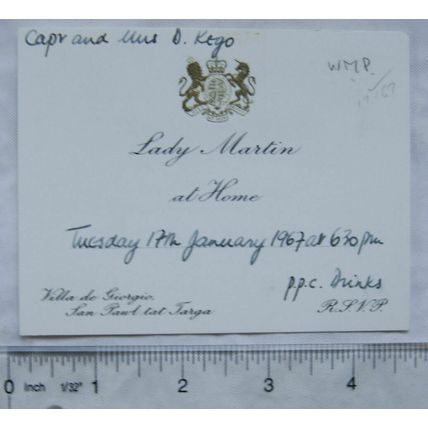 Capt and Mrs D. Kego
W.M.P.
Lady Martin
at Home
Tuesday 17th January 1967 at 630 pm
p.p.c. Drinks
Villa de Giorgio,
San Pawl tat Targa
R.S.V.P.
0 Inch 1/32" 1 2 3 4